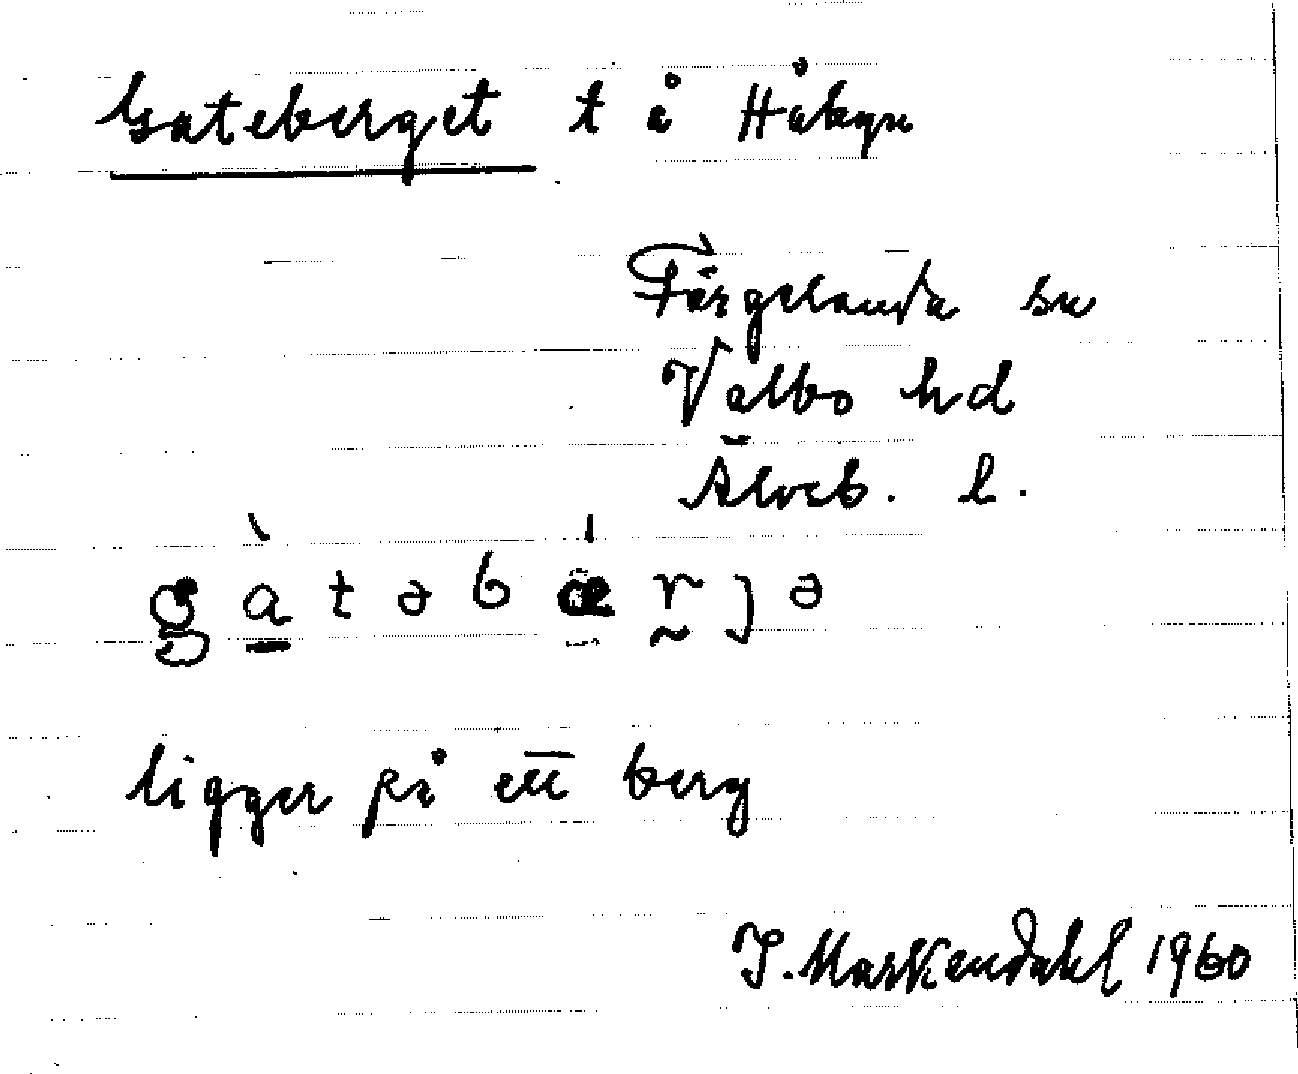 Gateberget t å Håbyn
Färgelanda sn
Valbo hd
Älvsb. l.
g à t ə b ǽ r̰ ȷ ə
ligger på ett berg
J. Markendahl 1960